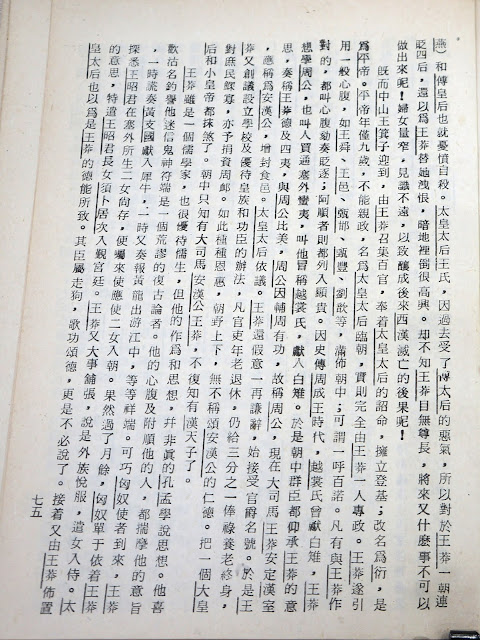 燕）和傅皇后也就憂憤自殺。太皇太后王氏，因過去受了傅太后的惡氣，所以對於王莽一朝連
貶四后，還以爲王莽替她洩恨，暗地裡倒很高興。却不知王莽目無尊長，將來又什麼事不可以
做出來呢！婦女量窄，見識不遠，以致釀成後來西漢滅亡的後果呢！
既而中山王箕子迎到，由王莽召集百官，奉着太皇太后的詔命，擁立登基；改名爲衍，是
爲平帝。平帝年僅九歲，不能親政，名爲太皇太后臨朝，實則完全由王莽一人專政。王莽遂引
用一般心腹，如王舜、王邑、甄邯、甄豐、劉歆等，滿佈朝中；可謂一呼百諾。凡有與王莽作
對的，都叫心腹劾奏貶逐；阿順者則都列入顯貴。因史傳周成王時代，越裳氏曾獻白雉，王莽
想學周公，也叫人買通塞外蠻夷，叫他冒稱越裳氏，獻入白雉。於是朝中群臣都仰承王莽的意
思，奏稱王莽德及四夷，與周公比美，周公因輔周有功，故稱周公，現在大司馬王莽安定漢室
，應稱爲安漢公，增封食邑。太皇太后依議。王莽還假意一再謙辭，始接受官爵名號。於是王
莽又創議設立學校及優待皇族和功臣的辦法，凡官吏年老退休，仍給三分之一俸祿養老終身，
對庶民鰥寡，亦予捐資周䘏。如此種種恩惠，朝野上下，無不稱頌安漢公的仁德。把一個大皇
后和小皇帝都抹煞了。朝中只知有大司馬安漢公王莽，不復知有漢天子了。
王莽雖是一個儒學家，也很優待儒生，但他的作爲和思想，并非眞的孔孟學說思想。他喜
歡沽名釣譽他迷信鬼神符端是一個荒謬的復古論者。他的心腹及附順他的人，都揣摩他的意旨
，一時流奏黃支國獻入犀牛，一時又奏報黃龍出游江中，等等祥端。可巧匈奴使者到來，王莽
探悉王昭君在塞外所生二女尙存，便囑來使應使二女入朝。果然過了月餘，匈奴單于依着王莽
的意思，特遣王昭君長女須卜居次入觀宮廷。王莽又大事舖張，說是外族悅服，遣女入侍。太
皇太后也以爲是王莽的德能所致。其臣屬走狗，歌功頌德，更是不必說了。接着又由王莽佈置
七五